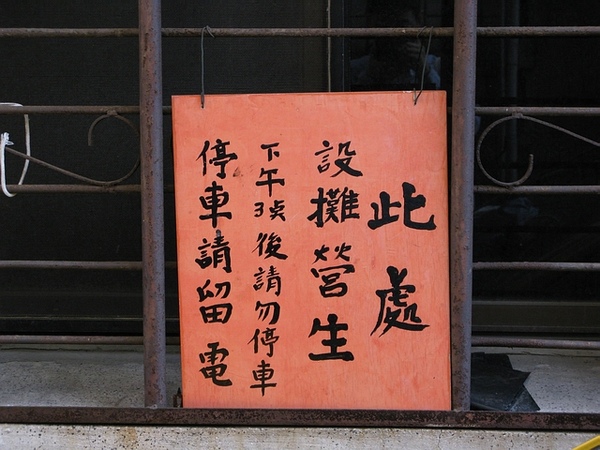 此處
設攤營生
下午3点後請勿停車
停車請留電